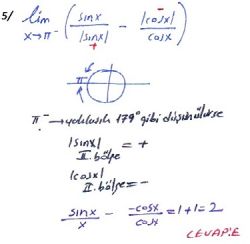 5/ lim x→π⁻ (sinx/|sinx| - |cosx|/cosx)
+ -
π
π⁻ → yaklaşık 179° gibi düşünülürse
|sinx| = +
II. bölge
|cosx| = -
II. bölge
sinx/x - -cosx/cosx = 1+1=2
CEVAP:E